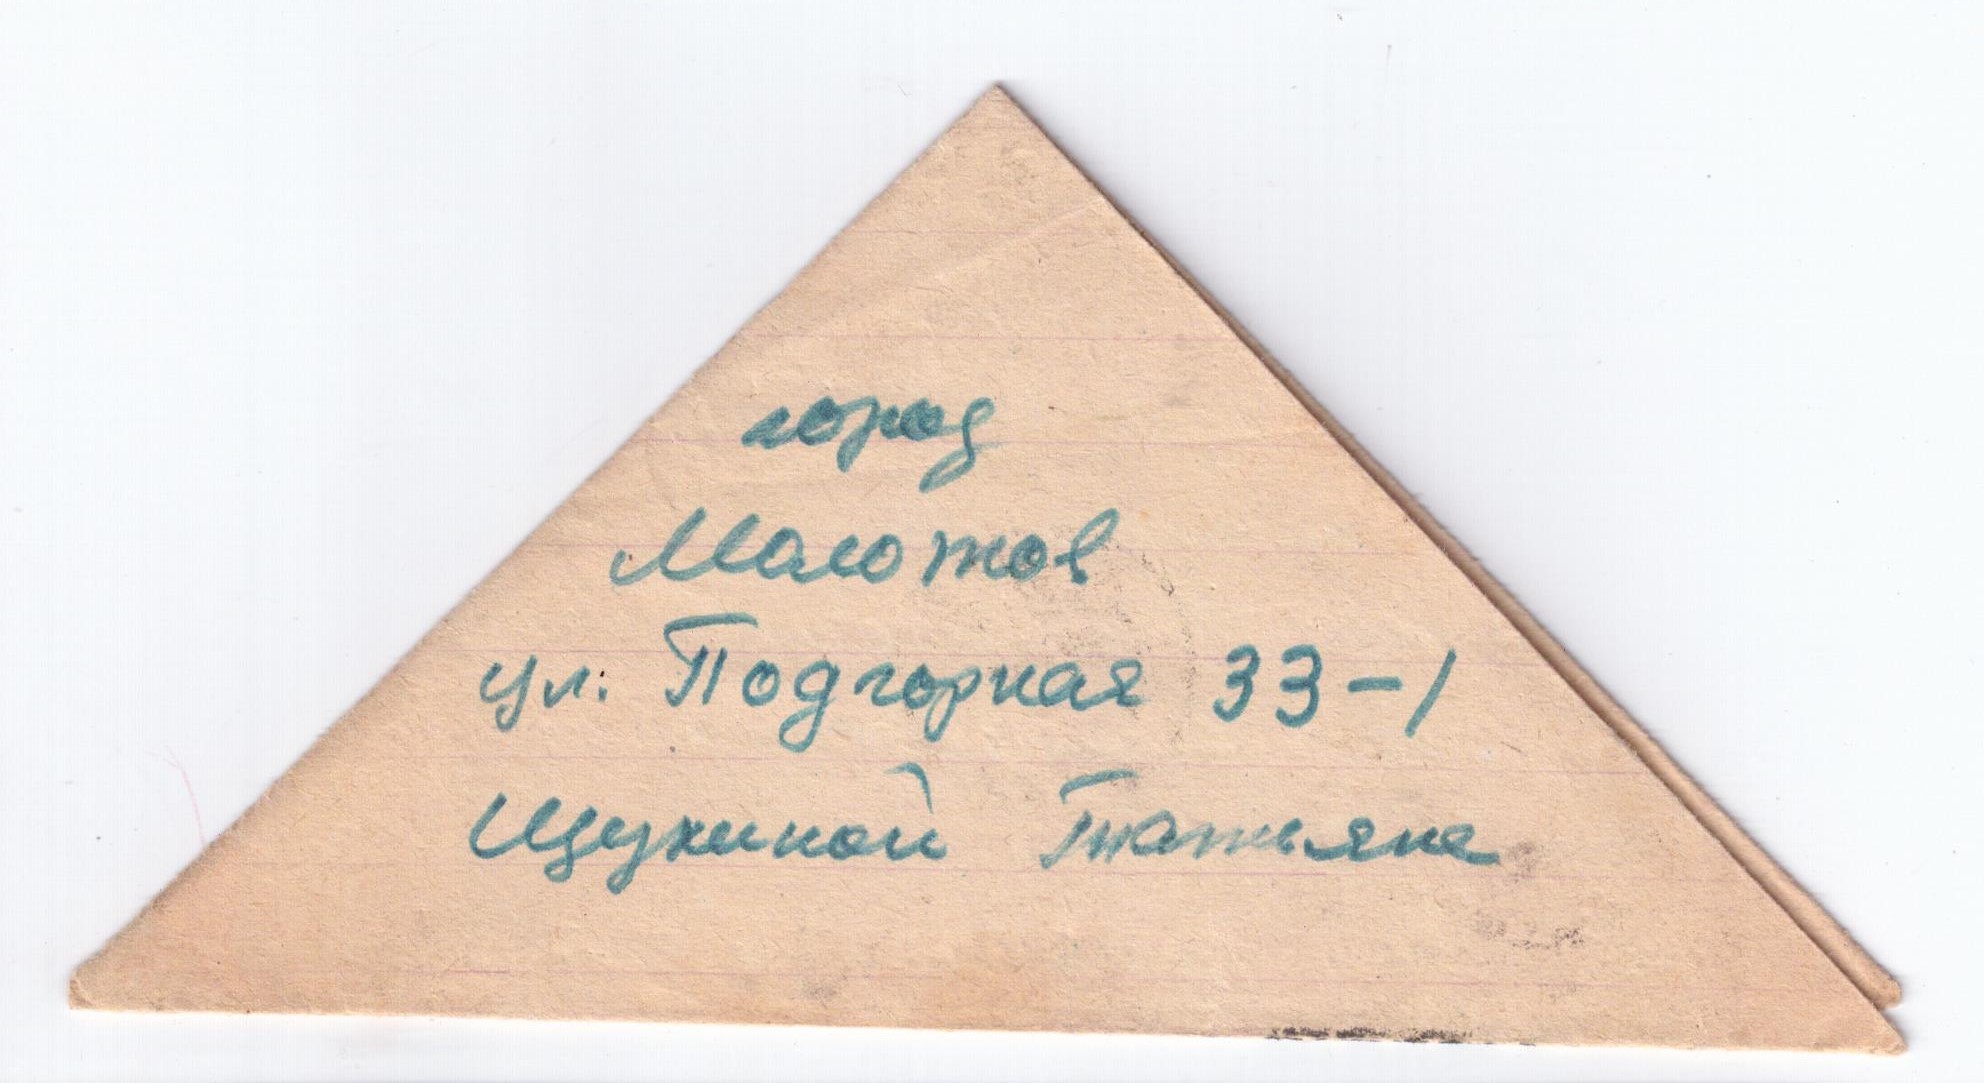 город
Молотов
ул. Подгорная 33-1
Щукиной Татьяне